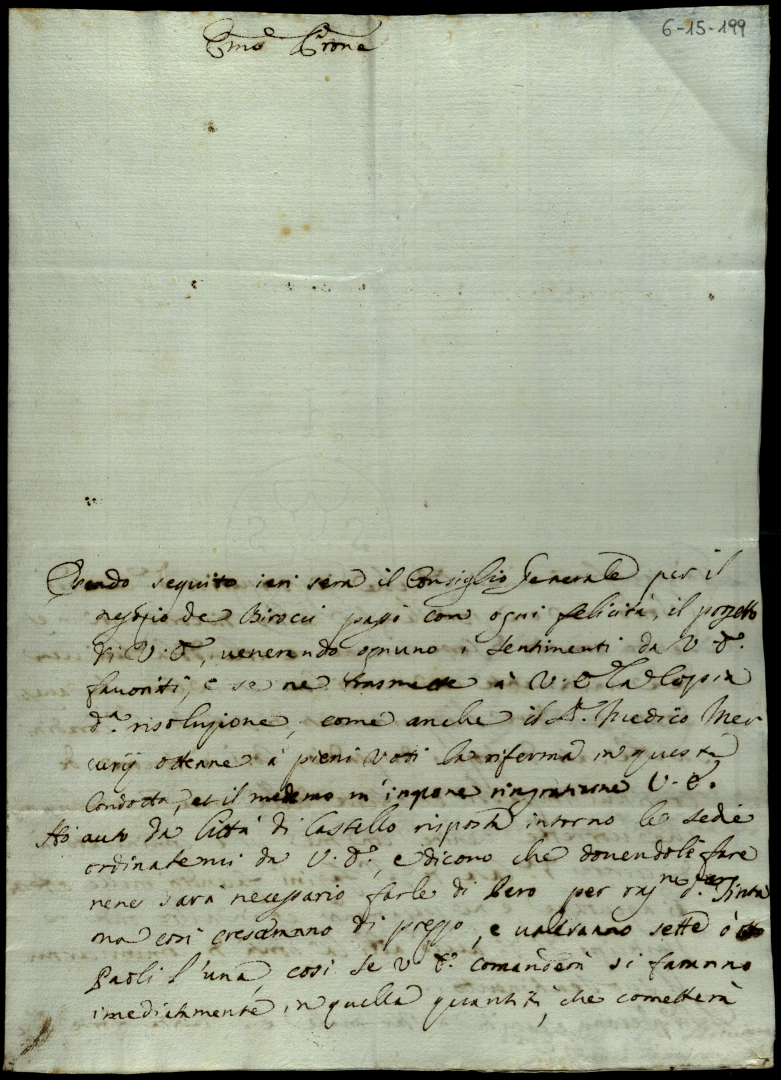 6-15-199
Emo Prone
Essendo seguito ieri sera il Consiglio Generale per il
negozio de Birocci passò con ogni felicità, il progetto
di V. E., venerando ognuno i sentimenti da V. E.
favoriti, e se ne trasmette à V. E. la Copia
da. risoluzione, come anche il Sr. Medico Mer
curij ottenne à pieni voti la riferma in questa
Condotta, et il medemo m'inpone ringratiarne V. E.
Hò auto da Città di Castello risposta intorno le sedie
ordinatemi da V. E., e dicono che dovendole fare
nere sarà necessario farle di Pero per
ma così crescemano di prezzo, e valeranno sette ò otto
Paoli l'una, così se V. E. comanderà si faranno
imediatamente in quella quantità, che cometterà